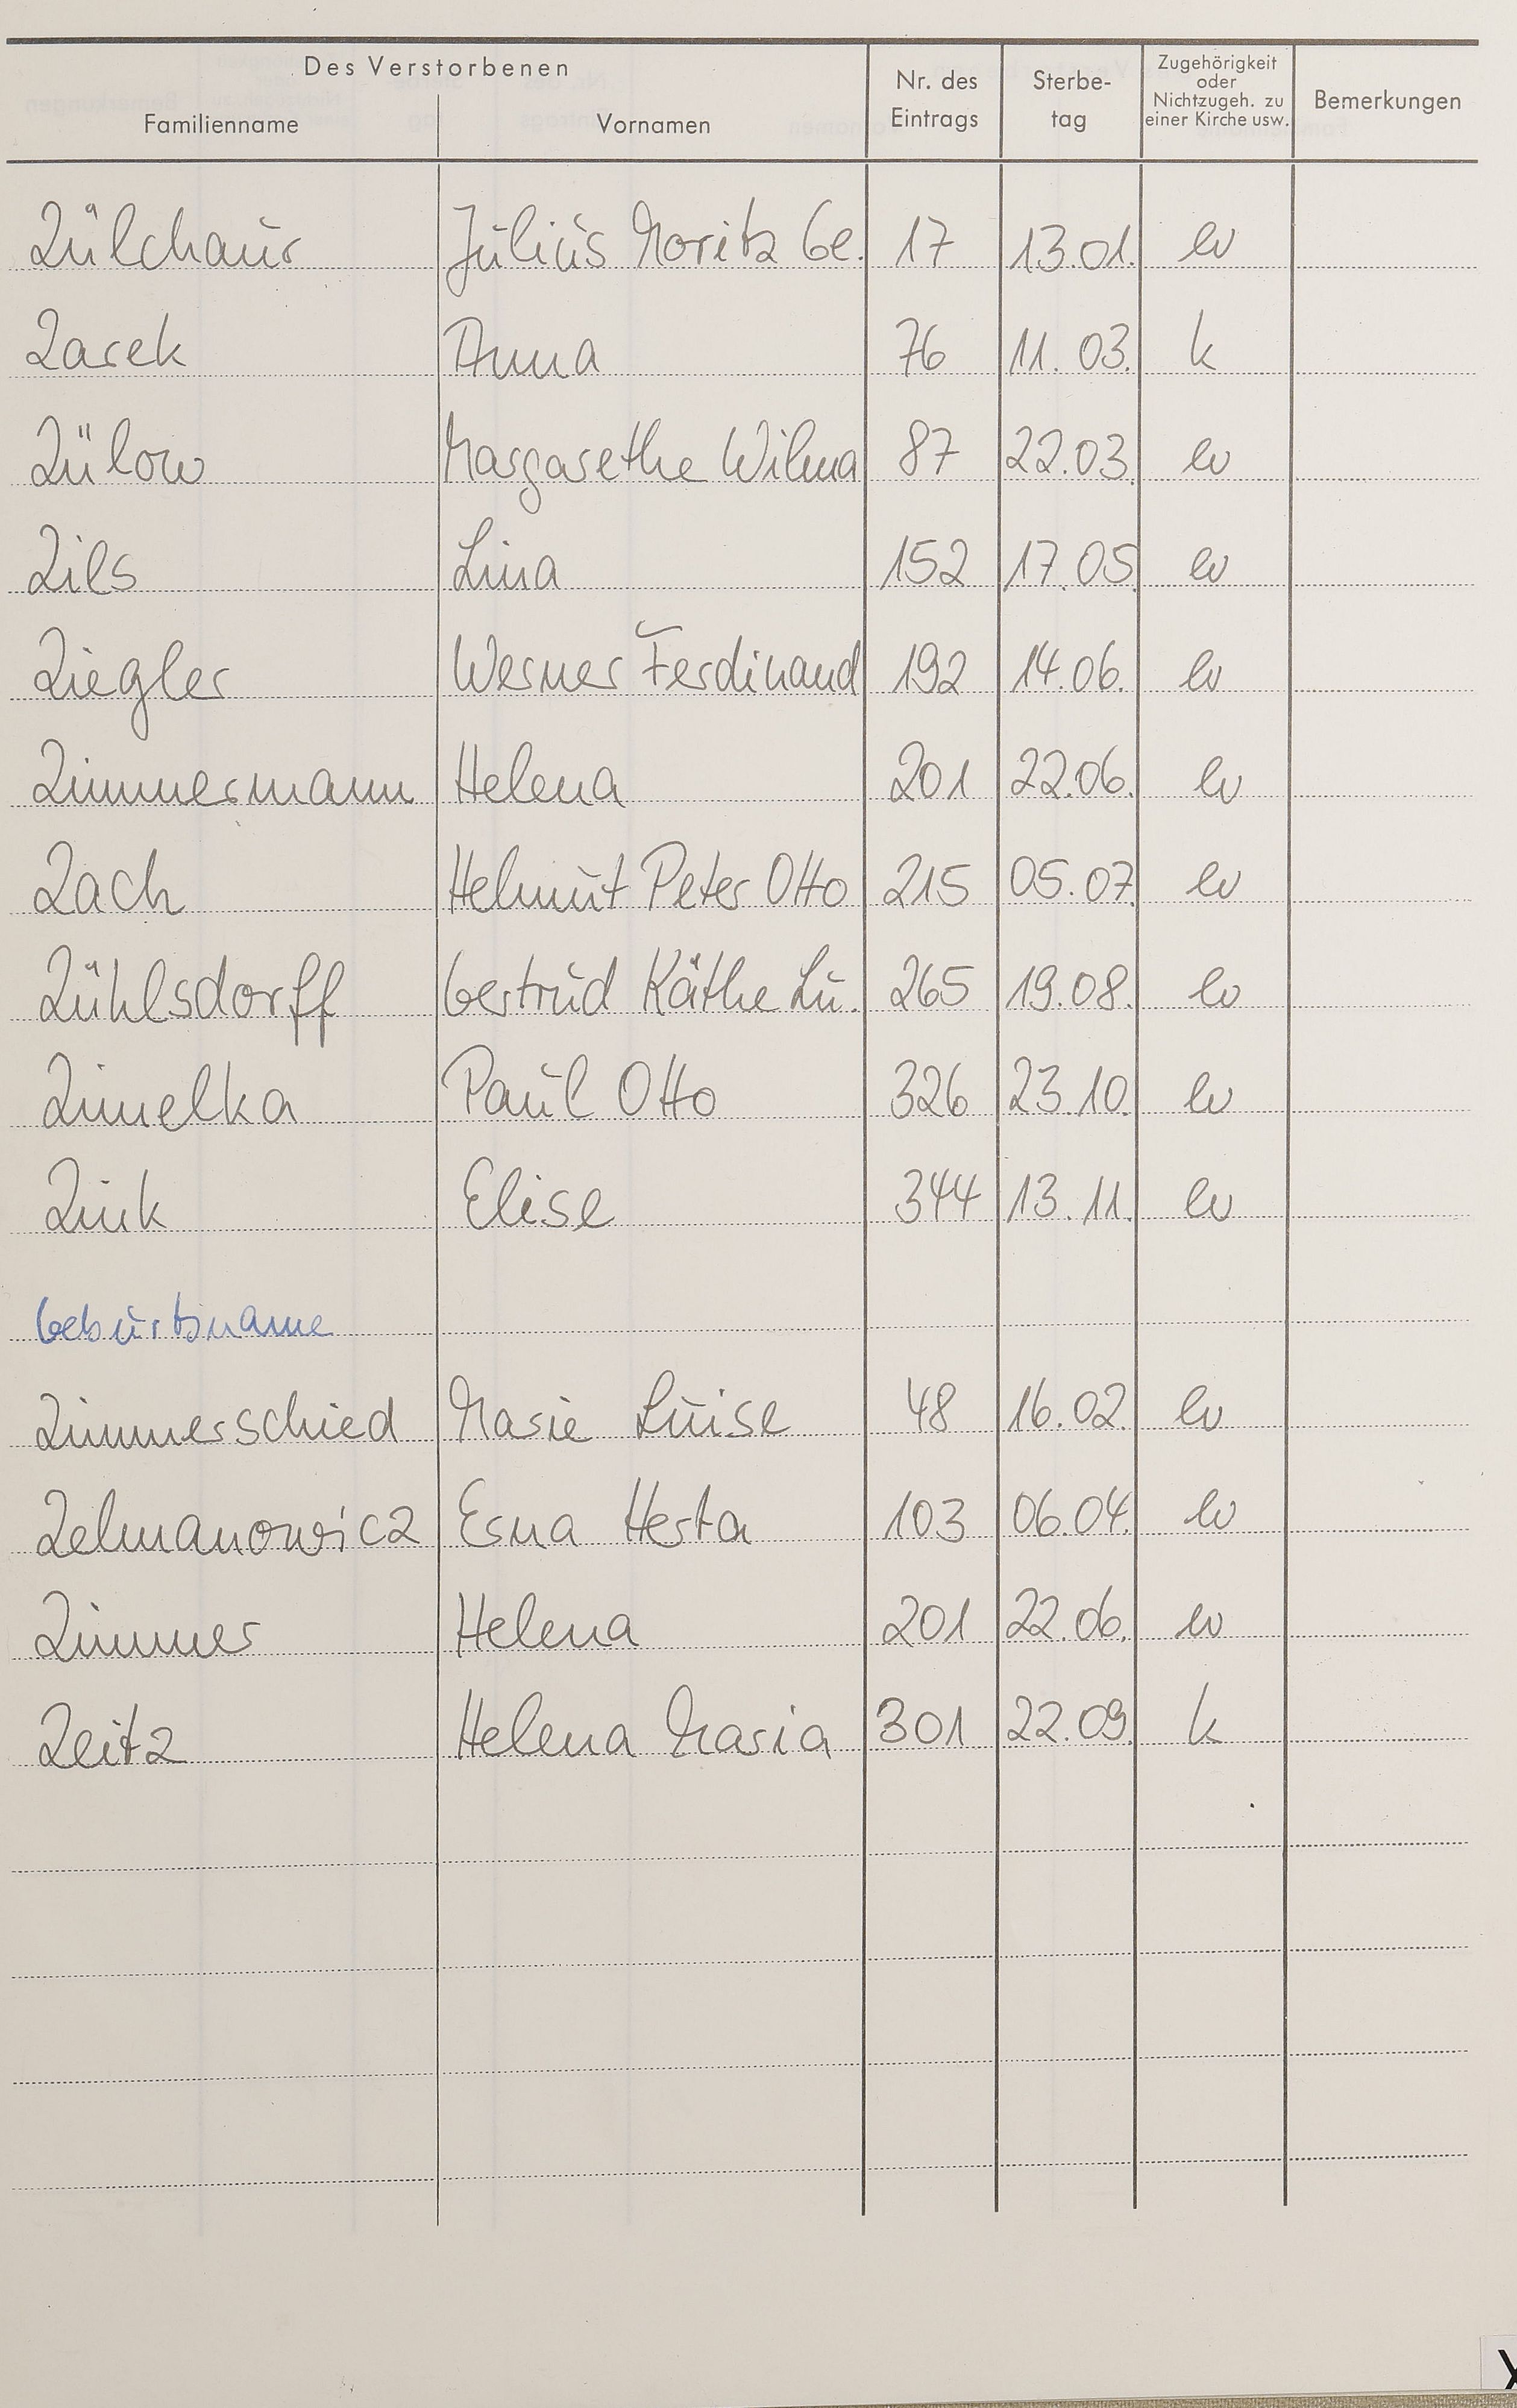 Des Verstorbenen
Familienname Vornamen Nr. des Eintrags Sterbe-tag Zugehörigkeit oder Nichtzugeh. zu einer Kirche usw. Bemerkungen
Zülchaur Julius Moritz Ge. 17 13.01. ev
Zarek Anna 76 11.03. k
Zülow Margarethe Wilma 87 22.03. ev
Zils Lina 152 17.05. ev
Ziegler Werner Ferdinand 192 14.06. ev
Zimmermann Helena 201 22.06. ev
Zach Helmut Peter Otto 215 05.07. ev
Zühlsdorff Gertrud Käthe Lu. 265 19.08. ev
Zimelka Paul Otto 326 23.10. ev
Zink Elise 344 13.11. ev
Geburtsname
Zimmerschied Marie Luise 48 16.02. ev
Zelmanowicz Erna Herta 103 06.04. ev
Zimmer Helena 201 22.06. ev
Zeitz Helena Maria 301 22.09. k